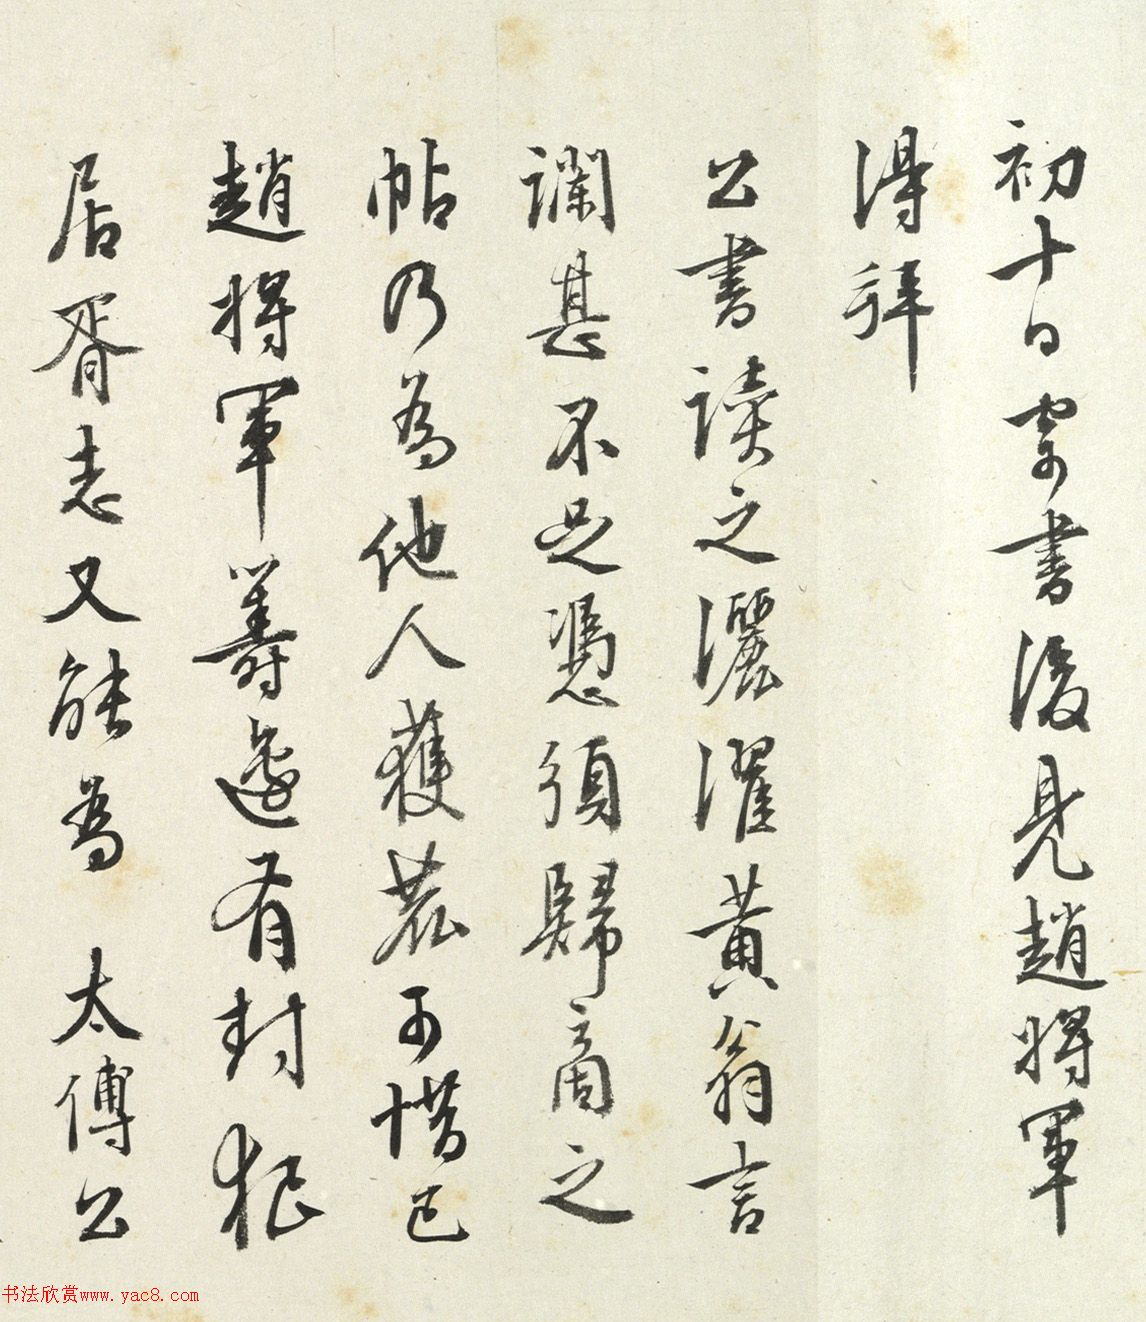 初十日寄書後見趙將軍
得拜
公書讀之灑濯黄翁言
讕甚不足憑須歸商之
帖乃為他人獲農可惜已
趙將軍籌邊有封狼
居胥志又能為 太傅公
书法欣赏www.yac8.com